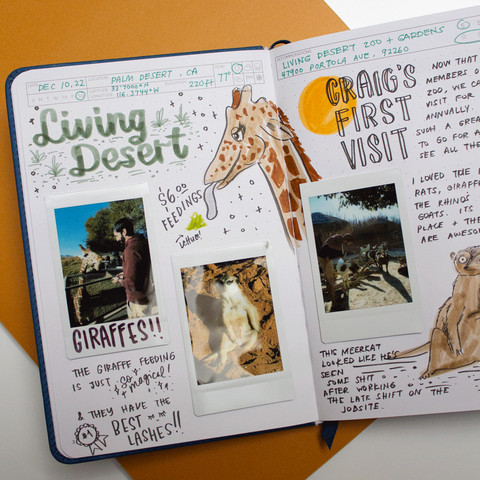 DEC 10, 22
PALM DESERT, CA
33.7000°N
116.3744°W
220ft
77°
Living
Desert
$6.00
FEEDINGS
GIRAFFES!!
THE GIRAFFE FEEDING
IS JUST SO
magical!
& THEY HAVE THE
BEST
LASHES!!
#1
LIVING DESERT ZOO + GARDENS
47900 PORTOLA AVE, 92260
CRAIG'S
FIRST
VISIT
NOW THAT
MEMBERS O
ZOO, WE CA
VISIT FOR
ANNUALLY.
SUCH A GREA
TO GO FOR A
SEE ALL THE
I LOVED THE
RATS, GIRAFFE
THE RHINOS
GOATS. ITS
PLACE + THE
ARE AWESO
THIS MEERKAT
LOOKED LIKE HE'S
SEEN
SOME SHIT
AFTER WORKING
THE LATE SHIFT ON THE
JOBSITE.